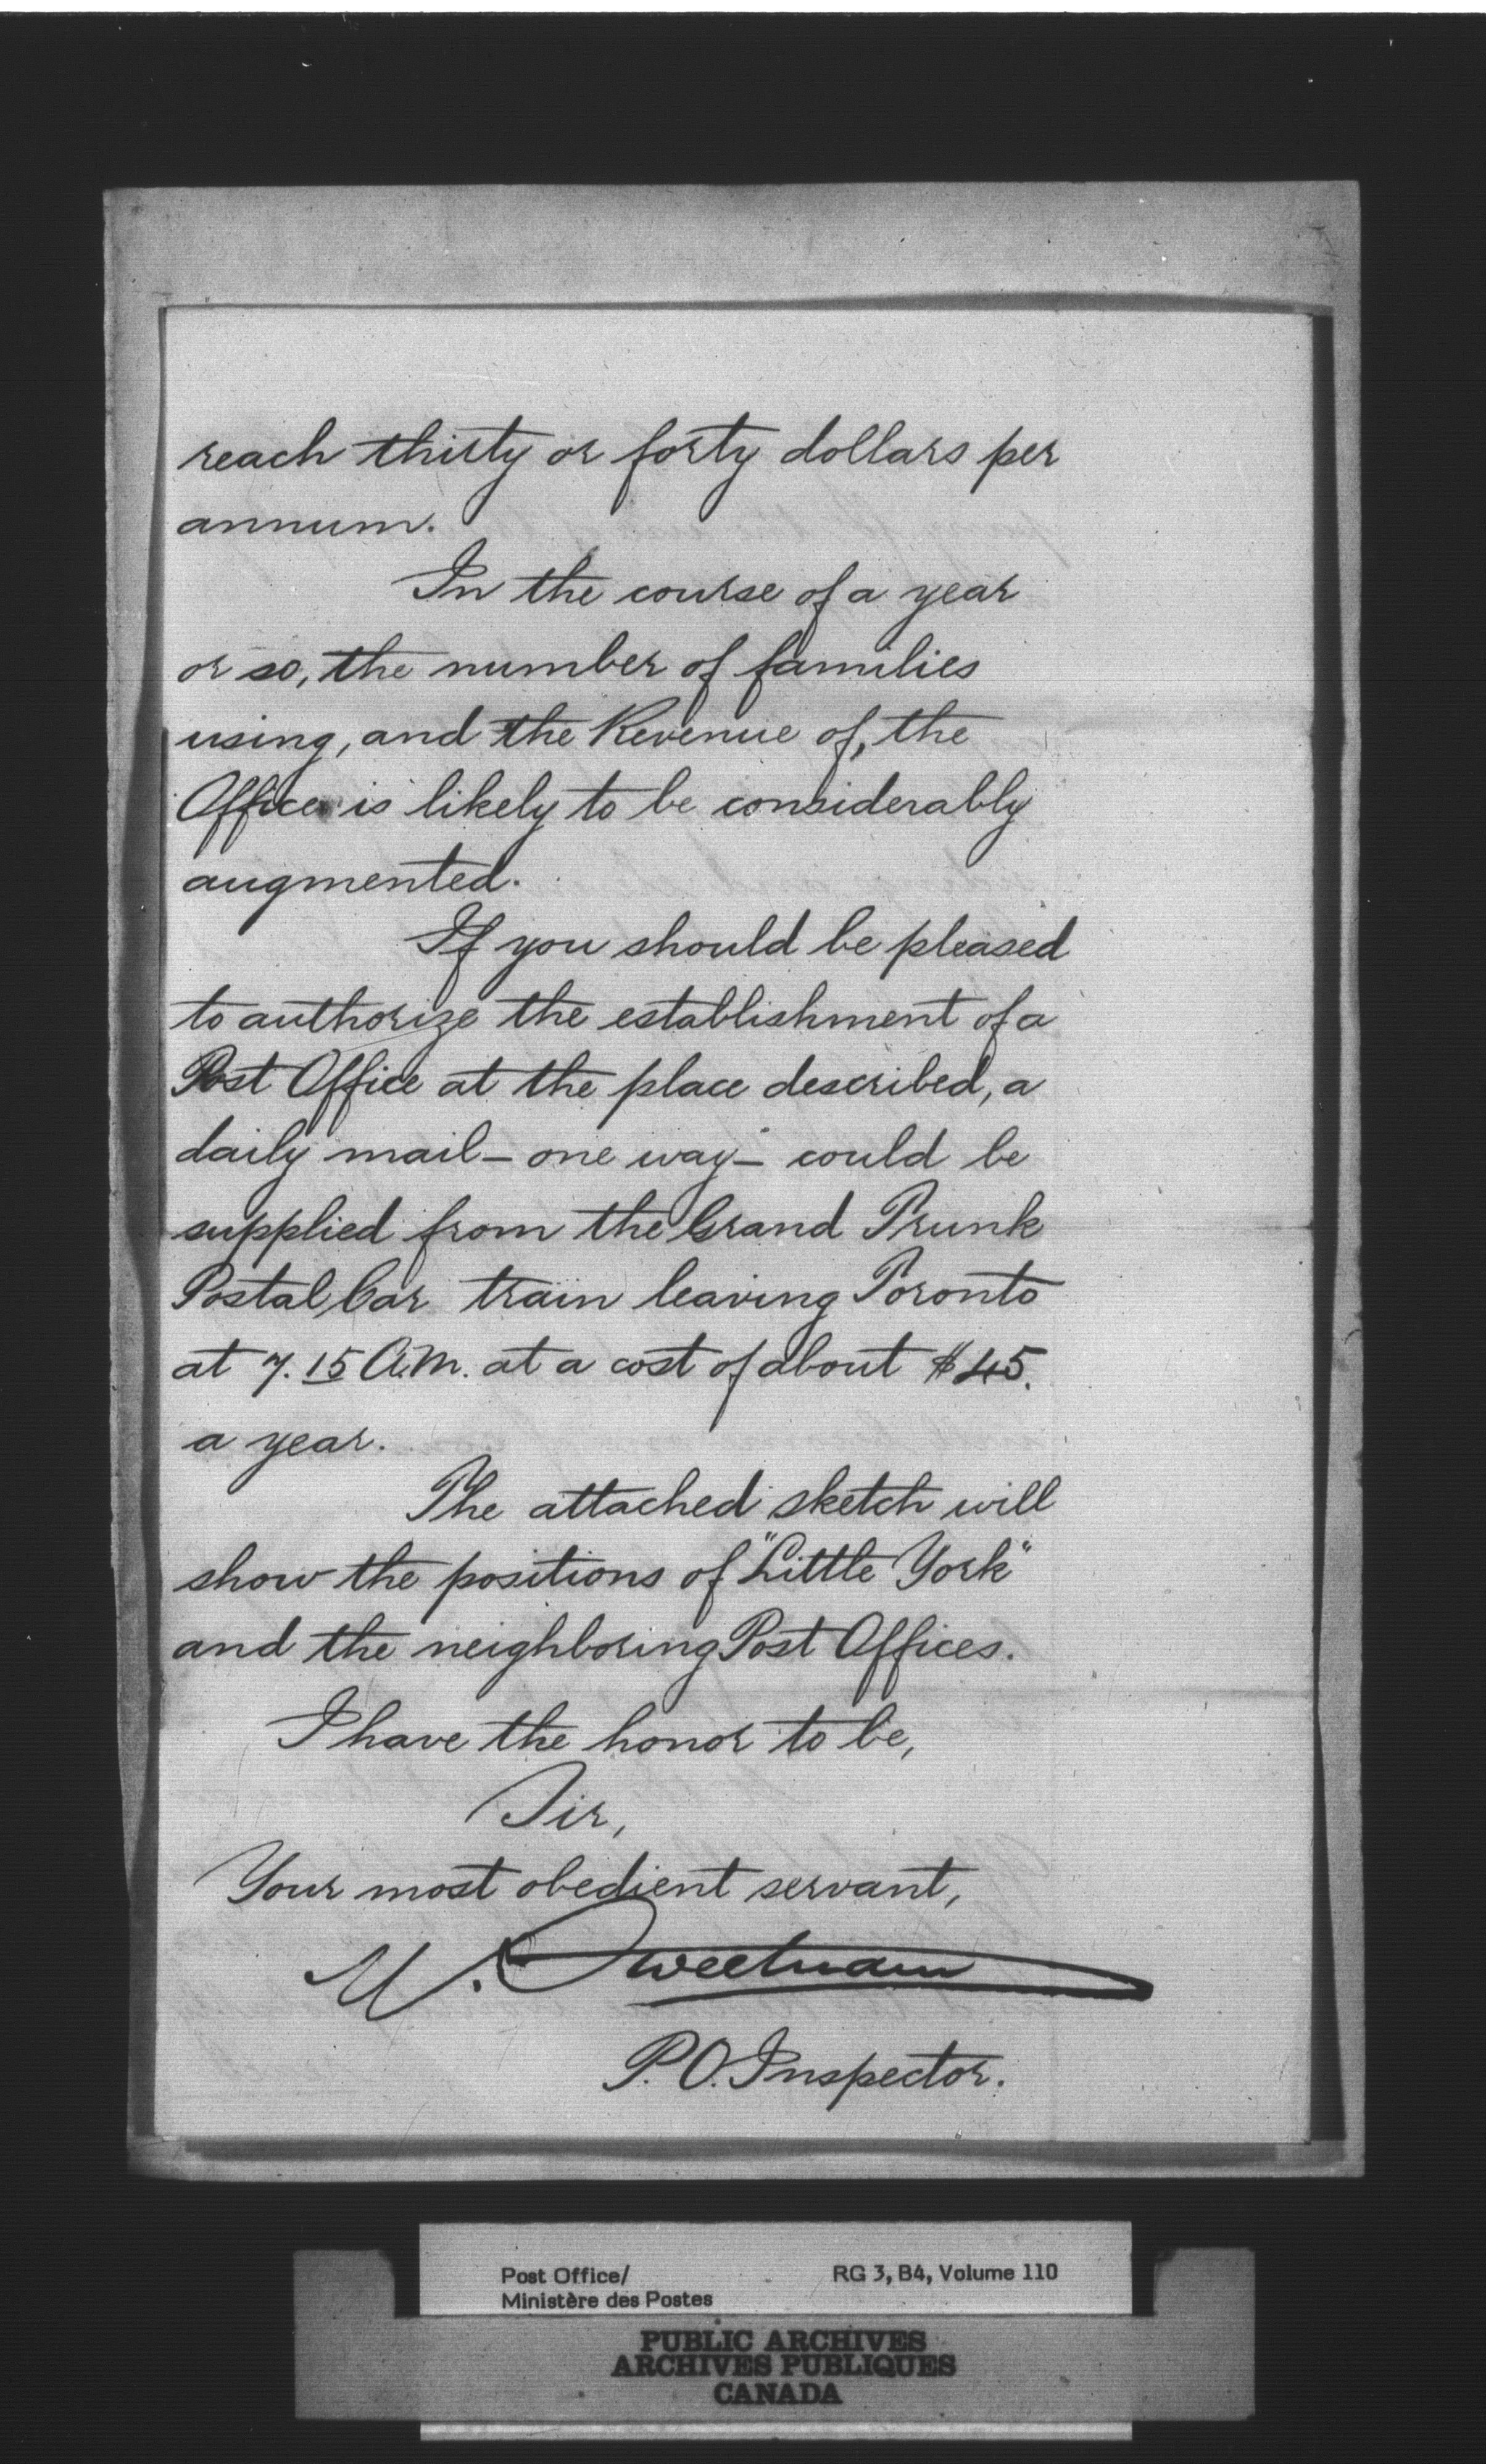 reach thirty or forty dollars per
annum.
In the course of a year
or so, the number of families
using, and the Revenue of, the
Office is likely to be considerably
augmented.
If you should be pleased
to authorize the establishment of a
Post Office at the place described, a
daily mail - one way - could be
supplied from the Grand Trunk
Postal Car train leaving Toronto
at 7.15 A.M. at a cost of about $45.
a year.
The attached sketch will
show the positions of "Little York"
and the neighboring Post Offices.
I have the honor to be,
Sir,
Your most obedient servant,
M. Sweetnam
P.O. Inspector.
Post Office/
Ministère des Postes
RG 3, B4, Volume 110
PUBLIC ARCHIVES
ARCHIVES PUBLIQUES
CANADA